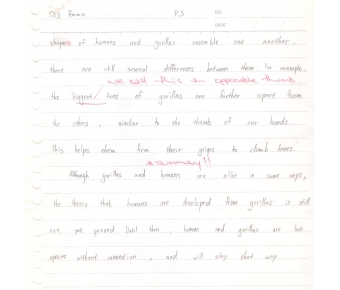 P.3 NO.
DATE
shapes of humans and gorillas resemble one another,
there are still several differences between them, for example,
we call this an opposable thumb
the biggest toes of gorillas are further apart from
the others, similar to the thumb of our hands.
This helps them firm their grips to climb trees.
*summary!!
Although gorillas and humans are alike in some ways,
the theory that humans are developed from gorillas is still
not yet proved. Until then, human and gorillas are two
species without connection, and will stay that way.